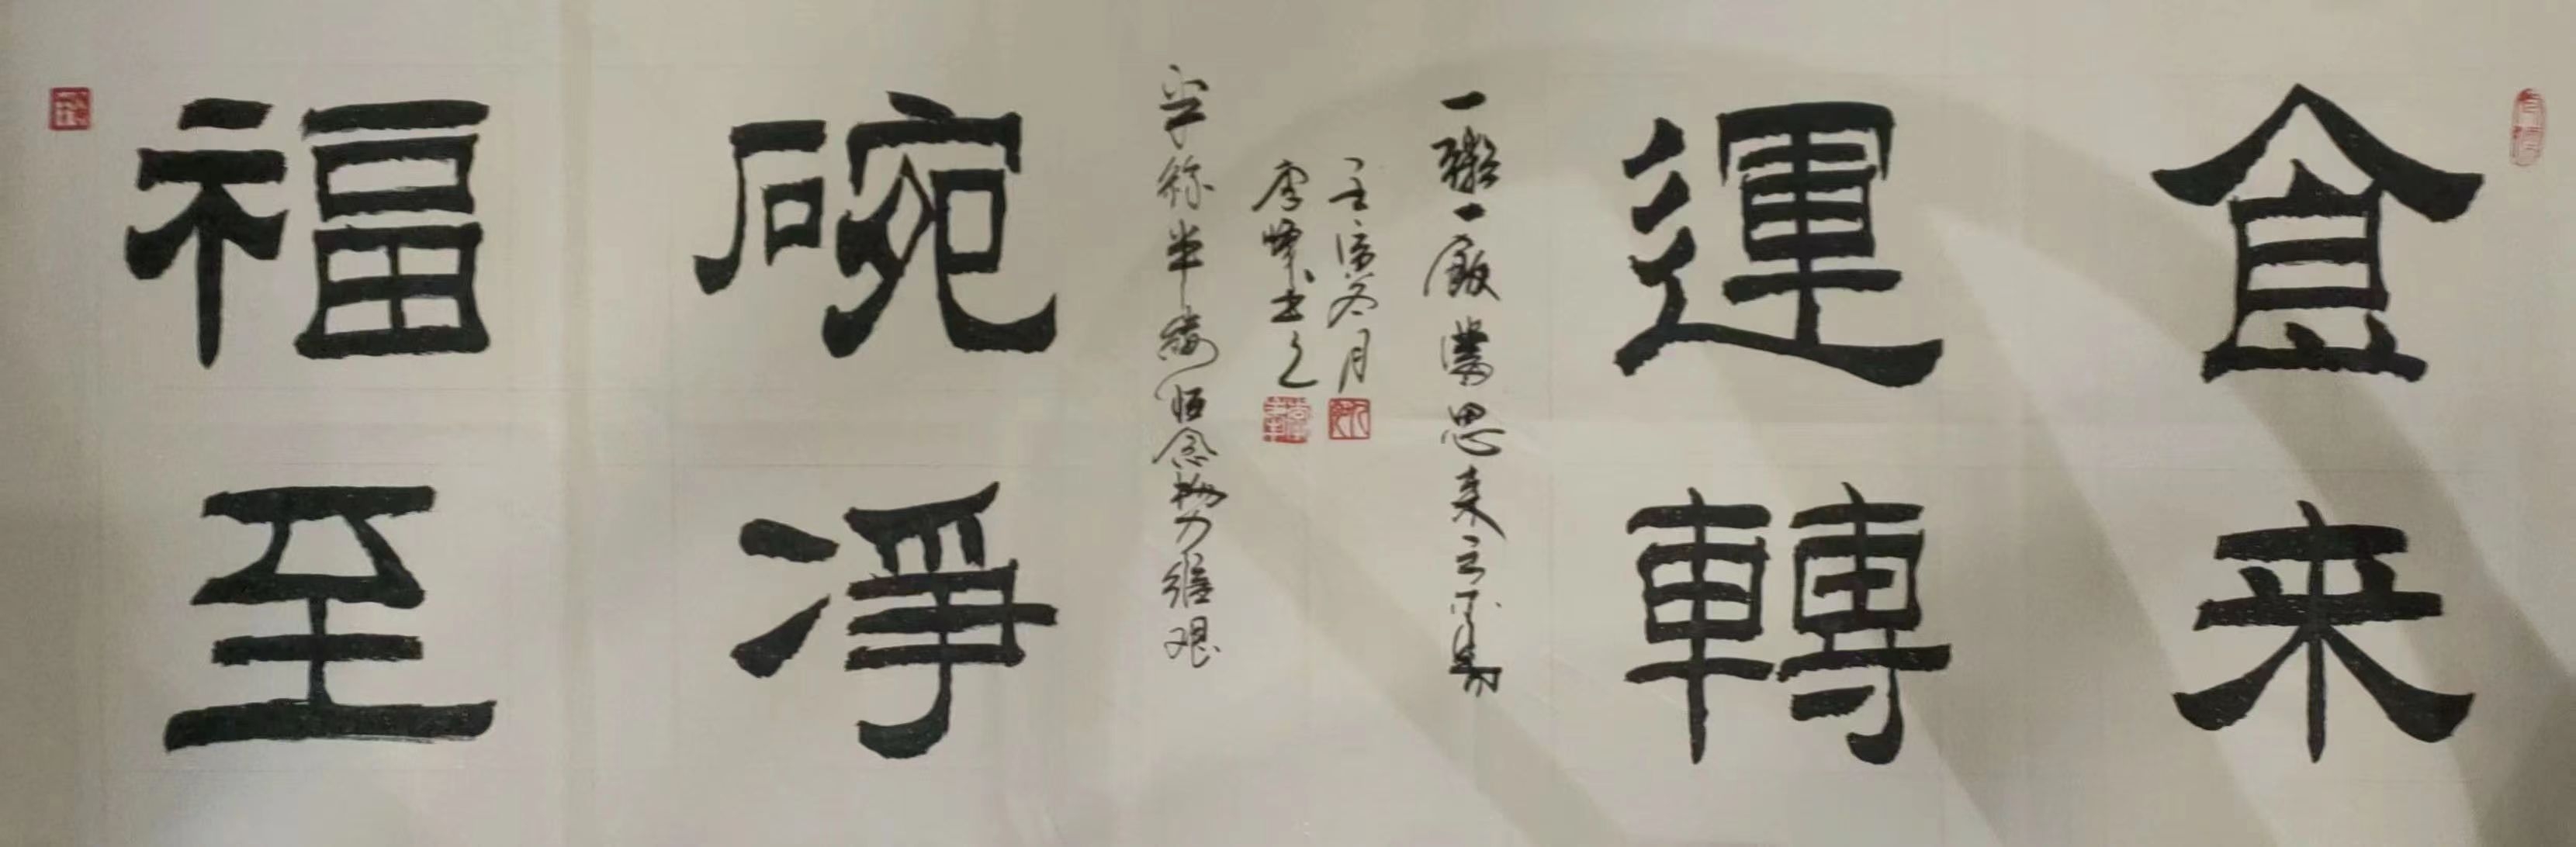 食来
運轉
一粥一飯當思来之不易
壬寅冬月
李峰书之
半絲半縷恒念物力維艰
碗凈
福至